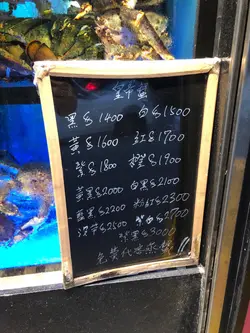 黑$1400 白$1500
黃$1600 紅$1700
$1800 $1900
黃黑$2000 白黑$2100
藍黑$2200 粉紅$2300
$2500 $2700
$3000
免費代